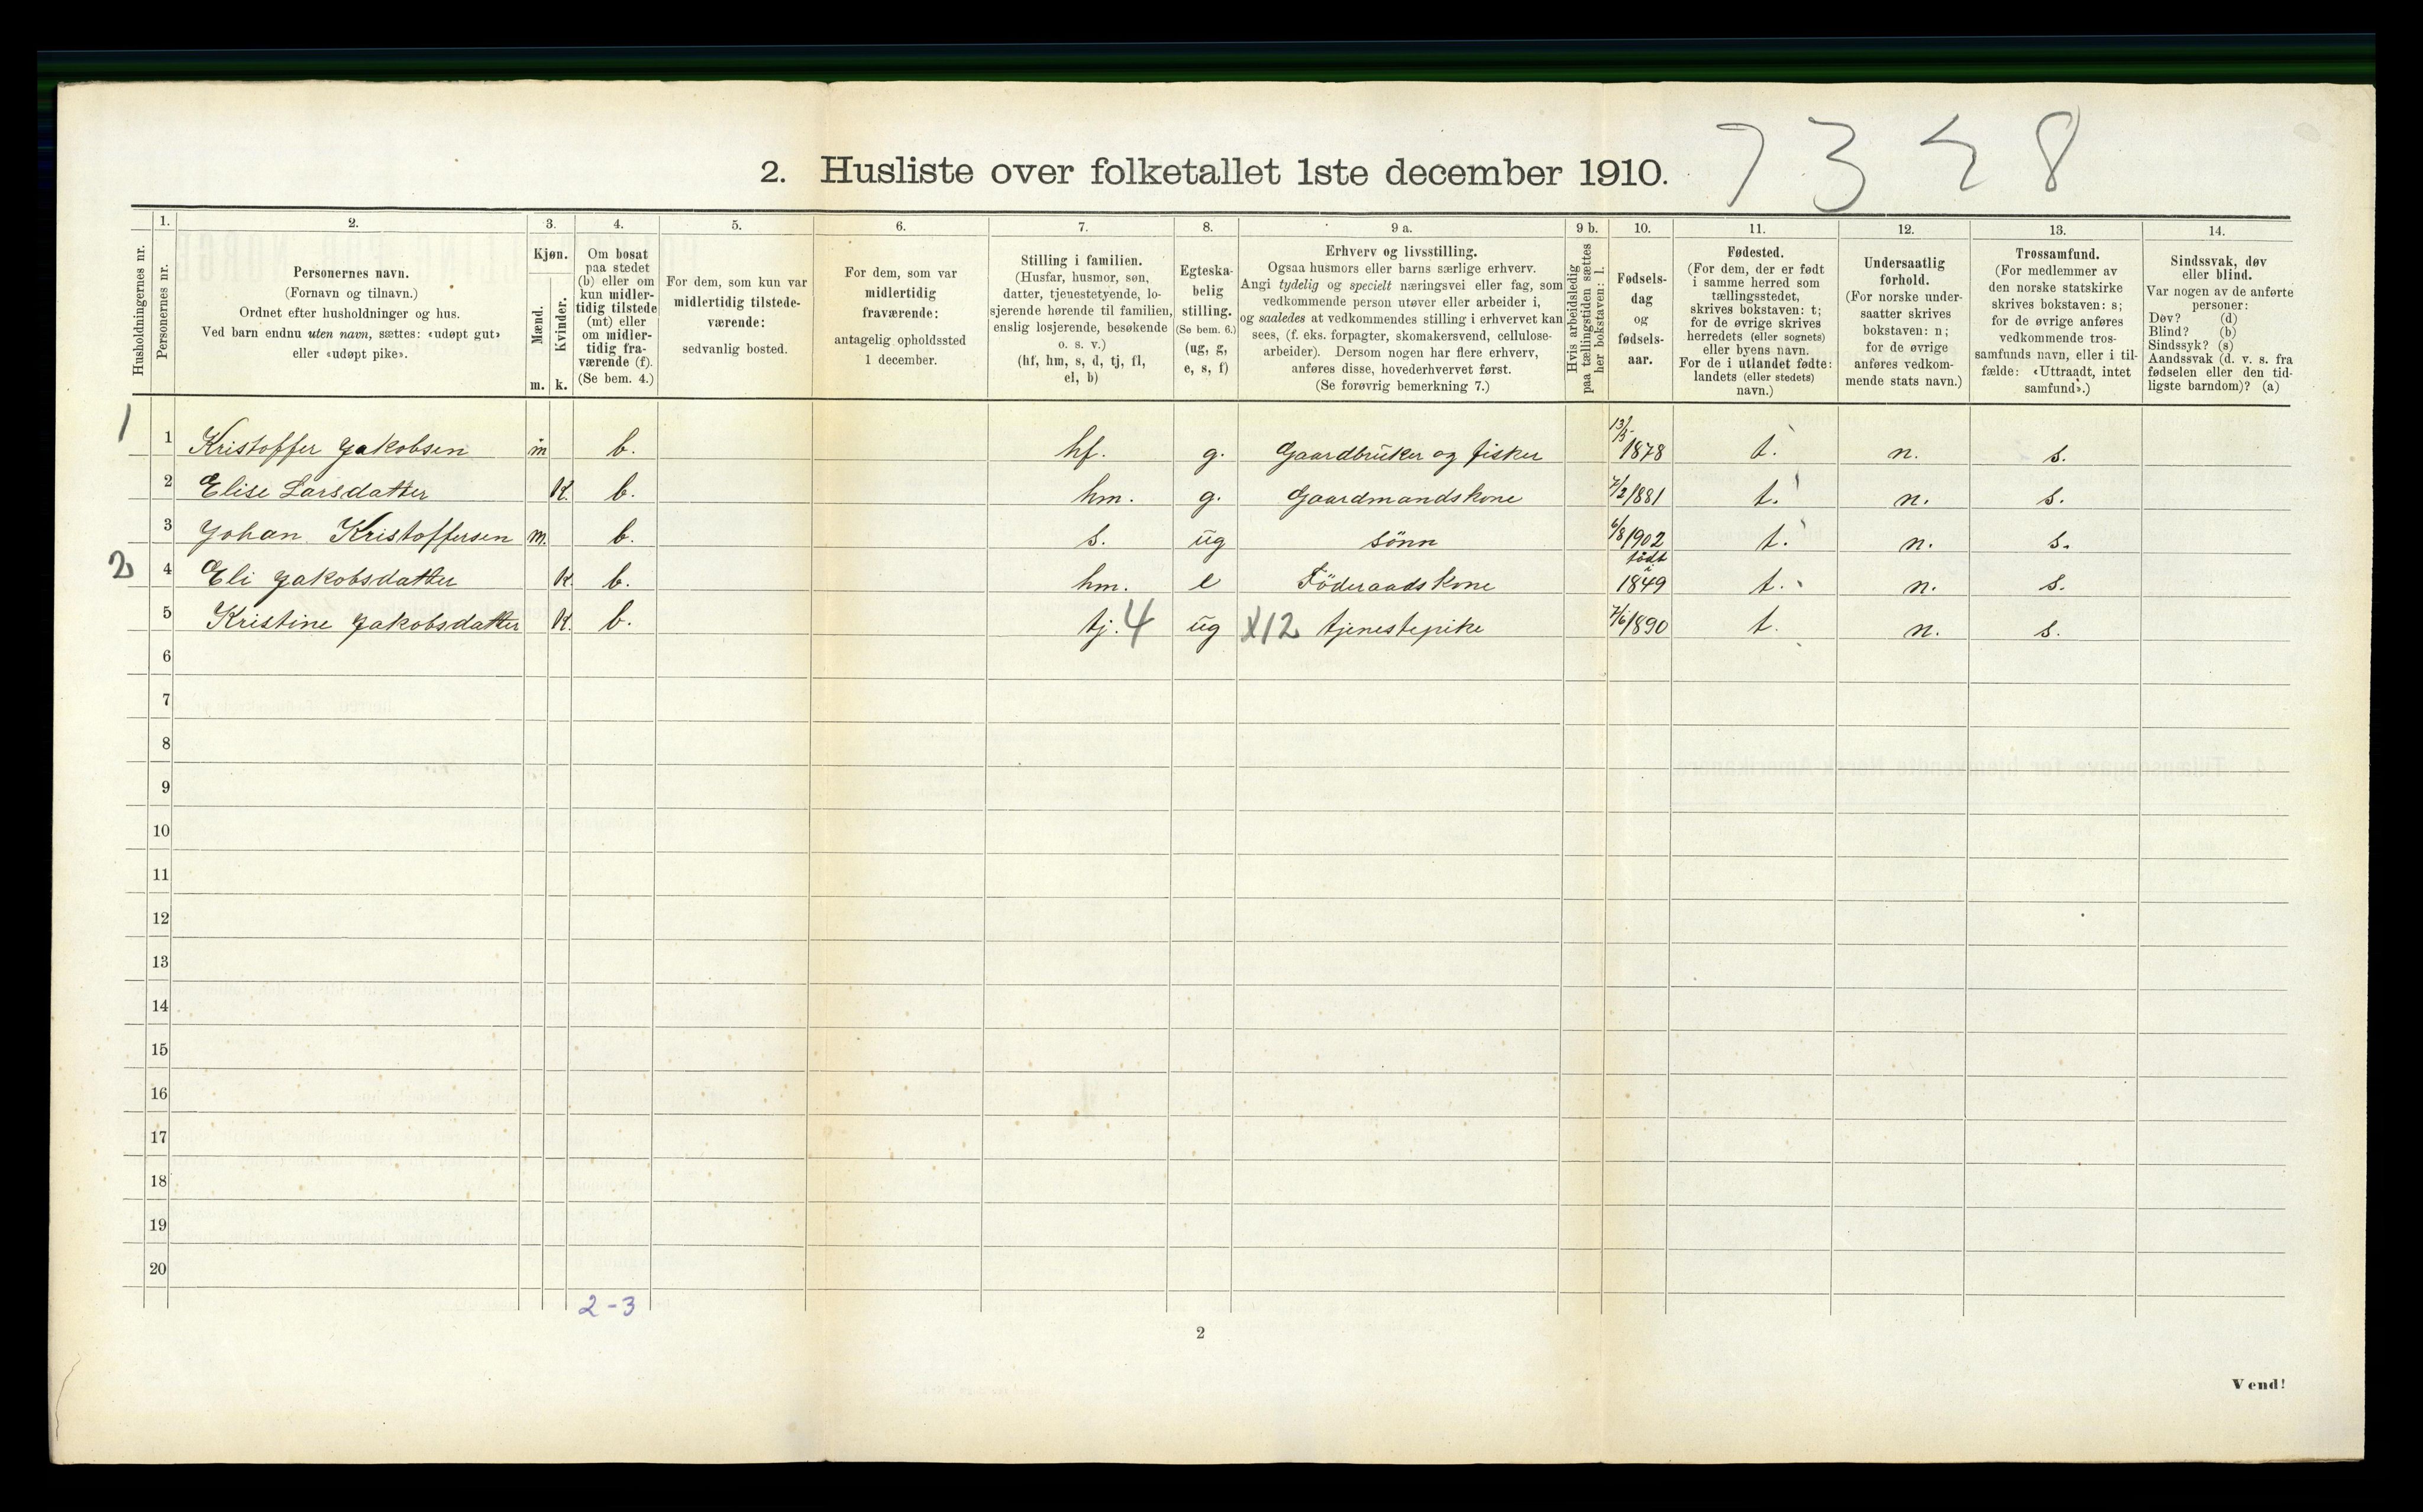 7348
2. Husliste over folketallet 1ste december 1910.
Husholdningernes nr.
1.
Personernes nr.
2.
Personernes navn.
(Fornavn og tilnavn.)
Ordnet efter husholdninger og hus.
Ved barn endnu uten navn, sættes: «udøpt gut»
eller «udøpt pike».
3.
Kjøn.
Mænd.
m.
Kvinder.
k.
4.
Om bosat
paa stedet
(b) eller om
kun midler-
tidig tilstede
(mt) eller
om midler-
tidig fra-
værende (f).
(Se bem. 4.)
5.
For dem, som kun var
midlertidig tilstede-
værende:
sedvanlig bosted.
6.
For dem, som var
midlertidig
fraværende:
antagelig opholdssted
1 december.
7.
Stilling i familien.
(Husfar, husmor, søn,
datter, tjenestetyende, lo-
sjerende hørende til familien,
enslig losjerende, besøkende
o. s. v.)
(hf, hm, s, d, tj, fl,
el, b)
8.
Egteska-
belig
stilling.
(Se bem. 6.)
(ug, g,
e, s, f)
9 a.
Erhverv og livsstilling.
Ogsaa husmors eller barns særlige erhverv.
Angi tydelig og specielt næringsvei eller fag, som
vedkommende person utøver eller arbeider i,
og saaledes at vedkommendes stilling i erhvervet kan
sees, (f. eks. forpagter, skomakersvend, cellulose-
arbeider). Dersom nogen har flere erhverv,
anføres disse, hovederhvervet først.
(Se forøvrig bemerkning 7.)
9 b.
Hvis arbeidsledig
paa tællingstiden sættes
her bokstaven: l.
10.
Fødsels-
dag
og
fødsels-
aar.
11.
Fødested.
(For dem, der er født
i samme herred som
tællingsstedet,
skrives bokstaven: t;
for de øvrige skrives
herredets (eller sognets)
eller byens navn.
For de i utlandet fødte:
landets (eller stedets)
navn.)
12.
Undersaatlig
forhold.
(For norske under-
saatter skrives
bokstaven: n;
for de øvrige
anføres vedkom-
mende stats navn.)
13.
Trossamfund.
(For medlemmer av
den norske statskirke
skrives bokstaven: s;
for de øvrige anføres
vedkommende tros-
samfunds navn, eller i til-
fælde: «Uttraadt, intet
samfund».)
14.
Sindssvak, døv
eller blind.
Var nogen av de anførte
personer:
Døv? (d)
Blind? (b)
Sindssyk? (s)
Aandssvak (d. v. s. fra
fødselen eller den tid-
ligste barndom)? (a)
1 1 Kristoffer Jakobsen m b. hf. g. Gaardbruker og fisker 13/5 1878 t. n. s.
2 Elise Larsdatter K. b. hm. g. Gaardmandskone 7/2 1881 t. n. s.
3 Johan Kristoffersen m. b. s. ug sönn 6/8 1902 t. n. s.
2 4 Eli Jakobsdatter K. b. hm. e Föderaadskone födt i 1849 t. n. s.
5 Kristine Jakobsdatter K. b. tj. 4 ug X12 tjenestepike 7/6 1890 t. n. s.
6
7
8
9
10
11
12
13
14
15
16
17
18
19
20
2-3
2
Vend!